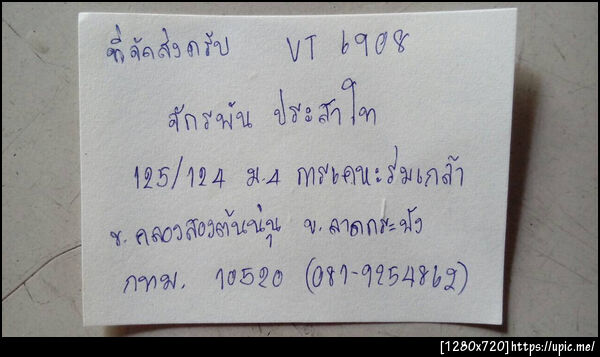 ที่จัดส่งครับ VT 6908
จักรพัน ประสาไท
125/124 ม.4 การเคหะร่มเกล้า
ข.คลองสองต้นนุ่น ข.ลาดกระบัง
กทม. 10520 (081-9254862)
[1280x720]https://upic.me/